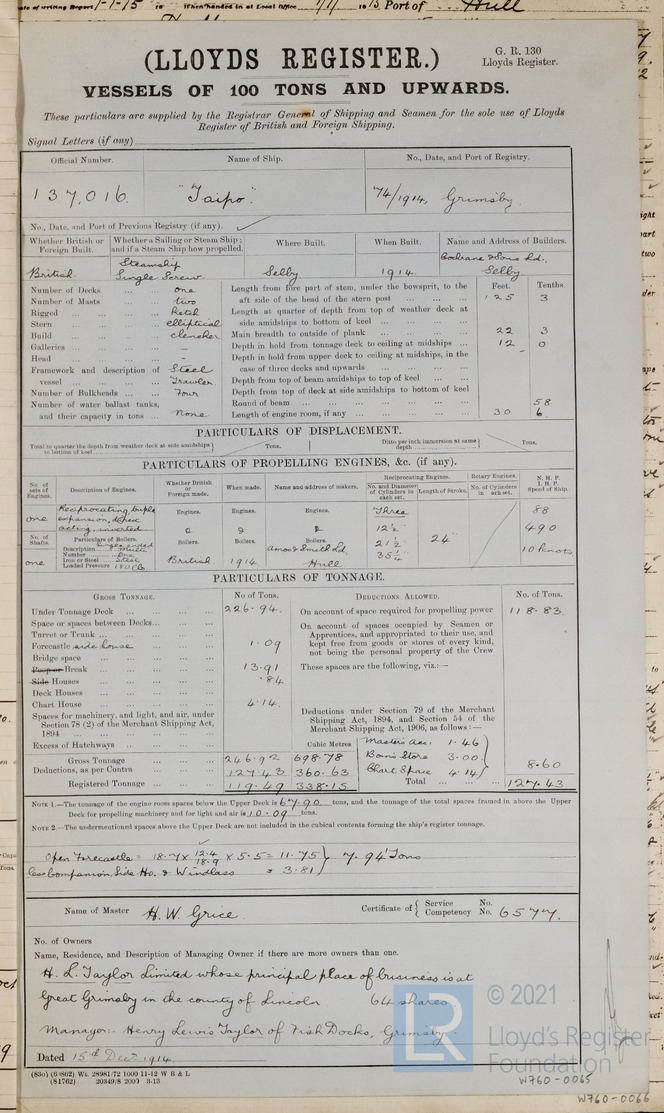 ate of writing Report 1/1/15 19 When handed in at Local Office 1/1 1915 Port of Hull
(LLOYDS REGISTER.)
G. R. 130
Lloyds Register.
VESSELS OF 100 TONS AND UPWARDS.
These particulars are supplied by the Registrar General of Shipping and Seamen for the sole use of Lloyds
Register of British and Foreign Shipping.
Signal Letters (if any)
Official Number. Name of Ship. No., Date, and Port of Registry.
137,016. "Taipo" 74/1914, Grimsby.
No., Date, and Port of Previous Registry (if any).
Whether British or Foreign Built. Whether a Sailing or Steam Ship; and if a Steam Ship how propelled. Where Built. When Built. Name and Address of Builders.
British. Steamship Single Screw Selby 1914 Cochrane & Sons Ld. Selby
Feet. Tenths
Number of Decks ... ... one
Number of Masts ... ... two
Rigged ... ... ... Ketch
Stern ... ... ... elliptical
Build ... ... ... clencher
Galleries ... ... ... -
Head ... ... ... -
Framework and description of vessel ... ... Steel Trawler
Number of Bulkheads ... Four
Number of water ballast tanks, and their capacity in tons ... None
Length from fore part of stem, under the bowsprit, to the aft side of the head of the stern post ... 125 3
Length at quarter of depth from top of weather deck at side amidships to bottom of keel ...
Main breadth to outside of plank ... 22 3
Depth in hold from tonnage deck to ceiling at midships ... 12 0
Depth in hold from upper deck to ceiling at midships, in the case of three decks and upwards ... -
Depth from top of beam amidships to top of keel ...
Depth from top of deck at side amidships to bottom of keel
Round of beam ... 58
Length of engine room, if any ... 30 6
PARTICULARS OF DISPLACEMENT.
Total to quarter the depth from weather deck at side amidships to bottom of keel Tons. Ditto per inch immersion at same depth Tons.
PARTICULARS OF PROPELLING ENGINES, &c. (if any).
No. of sets of Engines. Description of Engines. Whether British or Foreign made. When made. Name and address of makers. Reciprocating Engines. Rotary Engines. N. H. P. I. H. P. Speed of Ship.
No. and Diameter of Cylinders in each set. Length of Stroke. No. of Cylinders in each set.
one Reciprocating triple expansion, direct acting, inverted Engines. Engines. Engines. Three 12½ 21½ 35¼ 24" 88 490 10 knots
No. of Shafts. Particulars of Boilers. Boilers. Boilers. Boilers.
one Description Single ended Multi Number One Iron or Steel Steel Loaded Pressure 180 lb British 1914 Amos & Smith Ld, Hull
PARTICULARS OF TONNAGE.
GROSS TONNAGE. No of Tons. DEDUCTIONS ALLOWED. No. of Tons.
Under Tonnage Deck ... 226.94.
Space or spaces between Decks...
Turret or Trunk ...
Forecastle side house ... 1.09
Bridge space ...
Poop or Break ... 13.91
Side Houses ... .84
Deck Houses ...
Chart House ... 4.14.
Spaces for machinery, and light, and air, under Section 78 (2) of the Merchant Shipping Act, 1894 ...
Excess of Hatchways ...
On account of space required for propelling power 118.83.
On account of spaces occupied by Seamen or Apprentices, and appropriated to their use, and kept free from goods or stores of every kind, not being the personal property of the Crew
These spaces are the following, viz.:—
Deductions under Section 79 of the Merchant Shipping Act, 1894, and Section 54 of the Merchant Shipping Act, 1906, as follows:—
Cubic Metres
Master's acc: 1.46
Bosn's Store 3.00
Chart Space 4.14 8.60
Gross Tonnage ... 246.92 698.78
Deductions, as per Contra ... 127.43 360.63
Registered Tonnage ... 119.49 338.15
Total ... 127.43
NOTE 1.—The tonnage of the engine room spaces below the Upper Deck is 67.90 tons, and the tonnage of the total spaces framed in above the Upper
Deck for propelling machinery and for light and air is 10.09 tons.
NOTE 2.—The undermentioned spaces above the Upper Deck are not included in the cubical contents forming the ship's register tonnage.
Open Forecastle = 18.7 x 12.4 18.9 x 5.5 = 11.75
Less Companion, Side Ho. & Windlass = 3.81 7.94 Tons
Name of Master H. W. Grice Certificate of Service No. Competency No. 6577.
No. of Owners
Name, Residence, and Description of Managing Owner if there are more owners than one.
H. L. Taylor Limited whose principal place of business is at
Great Grimsby in the county of Lincoln 64 shares
Manager:- Henry Lewis Taylor of Fish Docks, Grimsby.
Dated 15th Decr 1914.
(830) (6(862) Wt. 28981/72 1000 11-12 W B & L
(81762) 20349/8 2000 3-13
LR © 2021
Lloyd's Register
Foundation
W760-0065
W760-0066